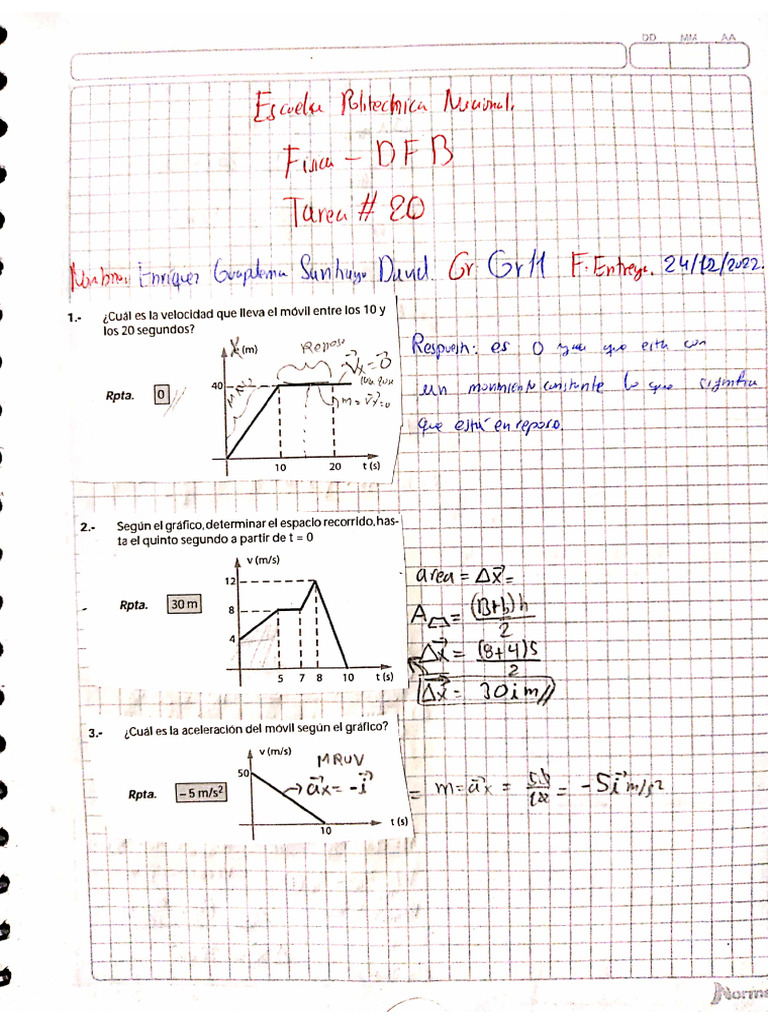 DD MM AA
Escuela Politechnica Nacional.
Física - DFB
Tarea # 20
Nombre: Enriquez Guaplema Santiago David. Gr: Gr11 F. Entrega. 24/12/2022.
1.- ¿Cuál es la velocidad que lleva el móvil entre los 10 y
los 20 segundos?
Rpta. 0
X (m)
Reposo
Vx = 0
40
m = Vx=0
10 20 t (s)
Respuesta: es 0 yua que esta con
un movimiento constante lo que significa
que está en reposo.
2.- Según el gráfico, determinar el espacio recorrido, has-
ta el quinto segundo a partir de t = 0
Rpta. 30 m
v (m/s)
12
8
4
5 7 8 10 t (s)
area = Δx =
A = (B+b)h / 2
Δx = (8+4)5 / 2
Δx = 30 i m //
3.- ¿Cuál es la aceleración del móvil según el gráfico?
Rpta. – 5 m/s²
v (m/s)
50
MRUV
ax = -i
10 t (s)
= m = ax = = -5i m/s²
Norma